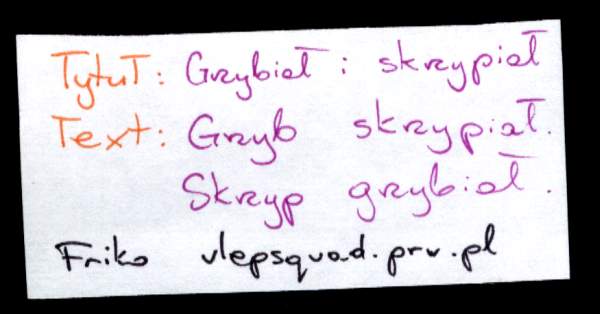 Tytuł: Grzybiał i skrzypiał
Text: Grzyb skrzypiał.
Skrzyp grzybiał.
Friko vlepsquad.prv.pl